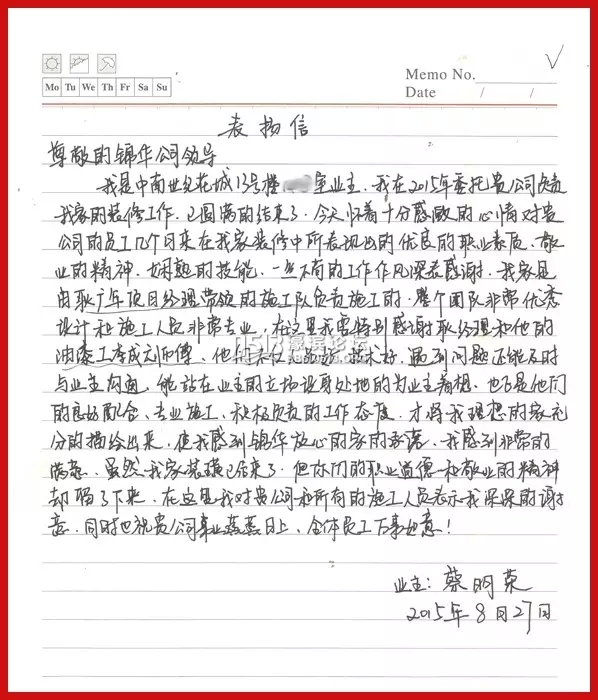 Memo No.
Mo Tu We Th Fr Sa Su
Date / /
表扬信
尊敬的锦华公司领导
我是中南世纪花城13号楼 室业主,我在2015年委托贵公司负责
我家的装修工作,已圆满的结束了,今天怀着十分感激的心情对贵
公司的员工几个月来在我家装修中所表现出的优良的职业素质、敬
业的精神、娴熟的技能、一丝不苟的工作作风深表感谢。我家是
由耿广年项目经理带领的施工队负责施工的,整个团队非常优秀
设计和施工人员非常专业,在这里我要特别感谢耿经理和他的
油漆工序成元师傅,他们工作,技术好,遇到问题还能及时
与业主沟通,能站在业主的立场设身处地的为业主着想,也正是他们
的良好配合、专业施工、积极负责的工作态度,才将我理想的家充
分的描绘出来,使我感到锦华放心的家的承诺,我感到非常的
满意,虽然我家装潢已结束了,但你们的职业道德和敬业的精神
却留了下来,在这里我对贵公司和所有的施工人员表示我深深的谢
意,同时也祝贵公司事业蒸蒸日上,全体员工万事如意!
业主:蔡明荣
2015年8月27日